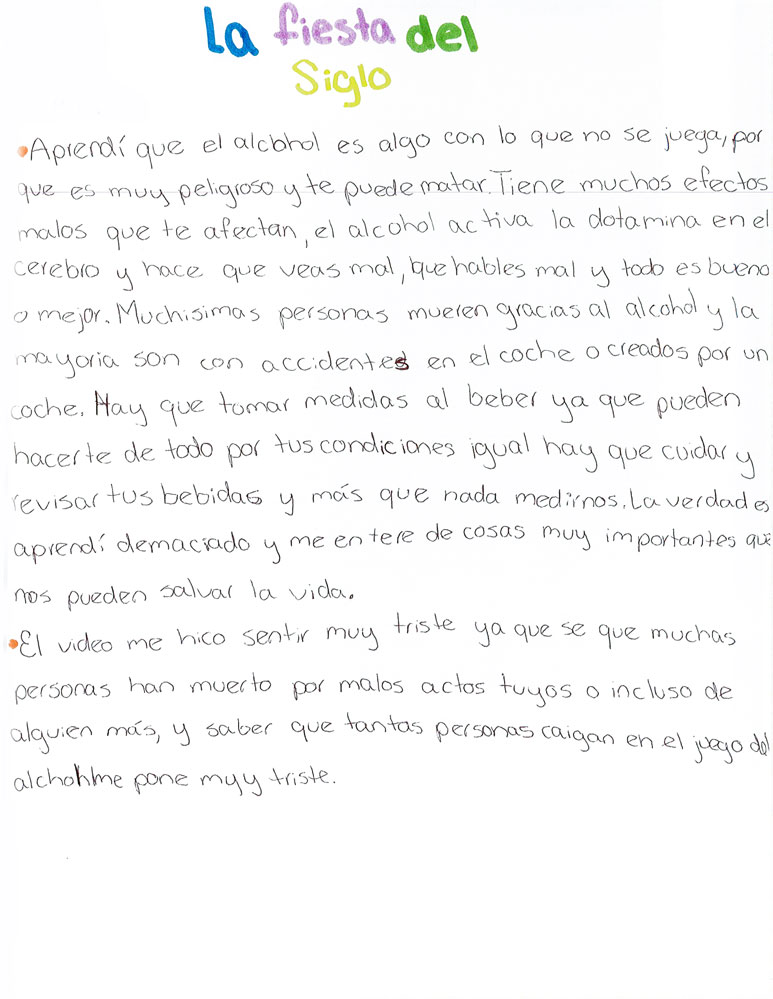 La fiesta del
Siglo
•Aprendí que el alcohol es algo con lo que no se juega, por
que es muy peligroso y te puede matar. Tiene muchos efectos
malos que te afectan, el alcohol activa la dotamina en el
cerebro y hace que veas mal, que hables mal y todo es bueno
o mejor. Muchisimas personas mueren gracias al alcohol y la
mayoria son con accidentes en el coche o creados por un
coche. Hay que tomar medidas al beber ya que pueden
hacerte de todo por tus condiciones igual hay que cuidar y
revisar tus bebidas y más que nada medirnos. La verdad es
aprendí demaciado y me entere de cosas muy importantes que
nos pueden salvar la vida.
•El video me hico sentir muy triste ya que se que muchas
personas han muerto por malos actos tuyos o incluso de
alguien más, y saber que tantas personas caigan en el juego del
alchohl me pone muy triste.